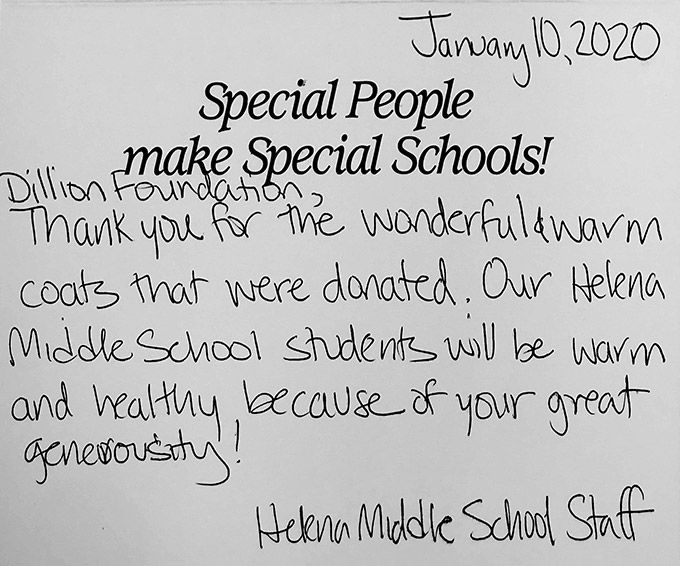 January 10, 2020
Special People
make Special Schools!
Dillion Foundation,
Thank you for the wonderful & warm
coats that were donated. Our Helena
Middle School students will be warm
and healthy because of your great
generousity!
Helena Middle School Staff